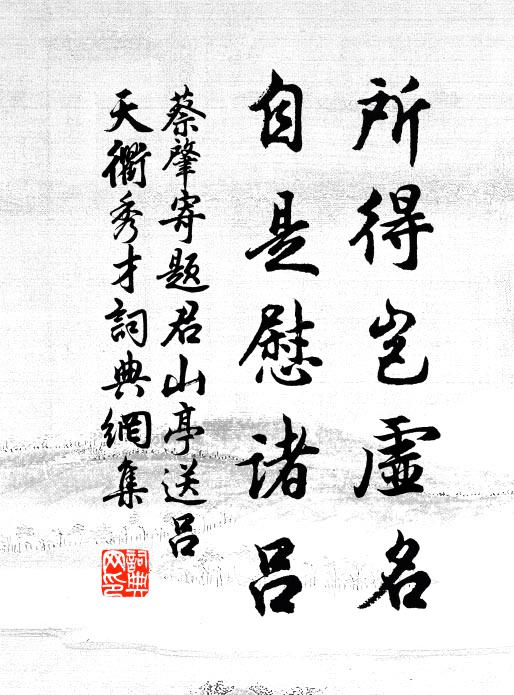 所得岂虚名
自是慰诸吕
蔡肇寄题君山亭送吕
天衢秀才詞典網集
詞典
网印